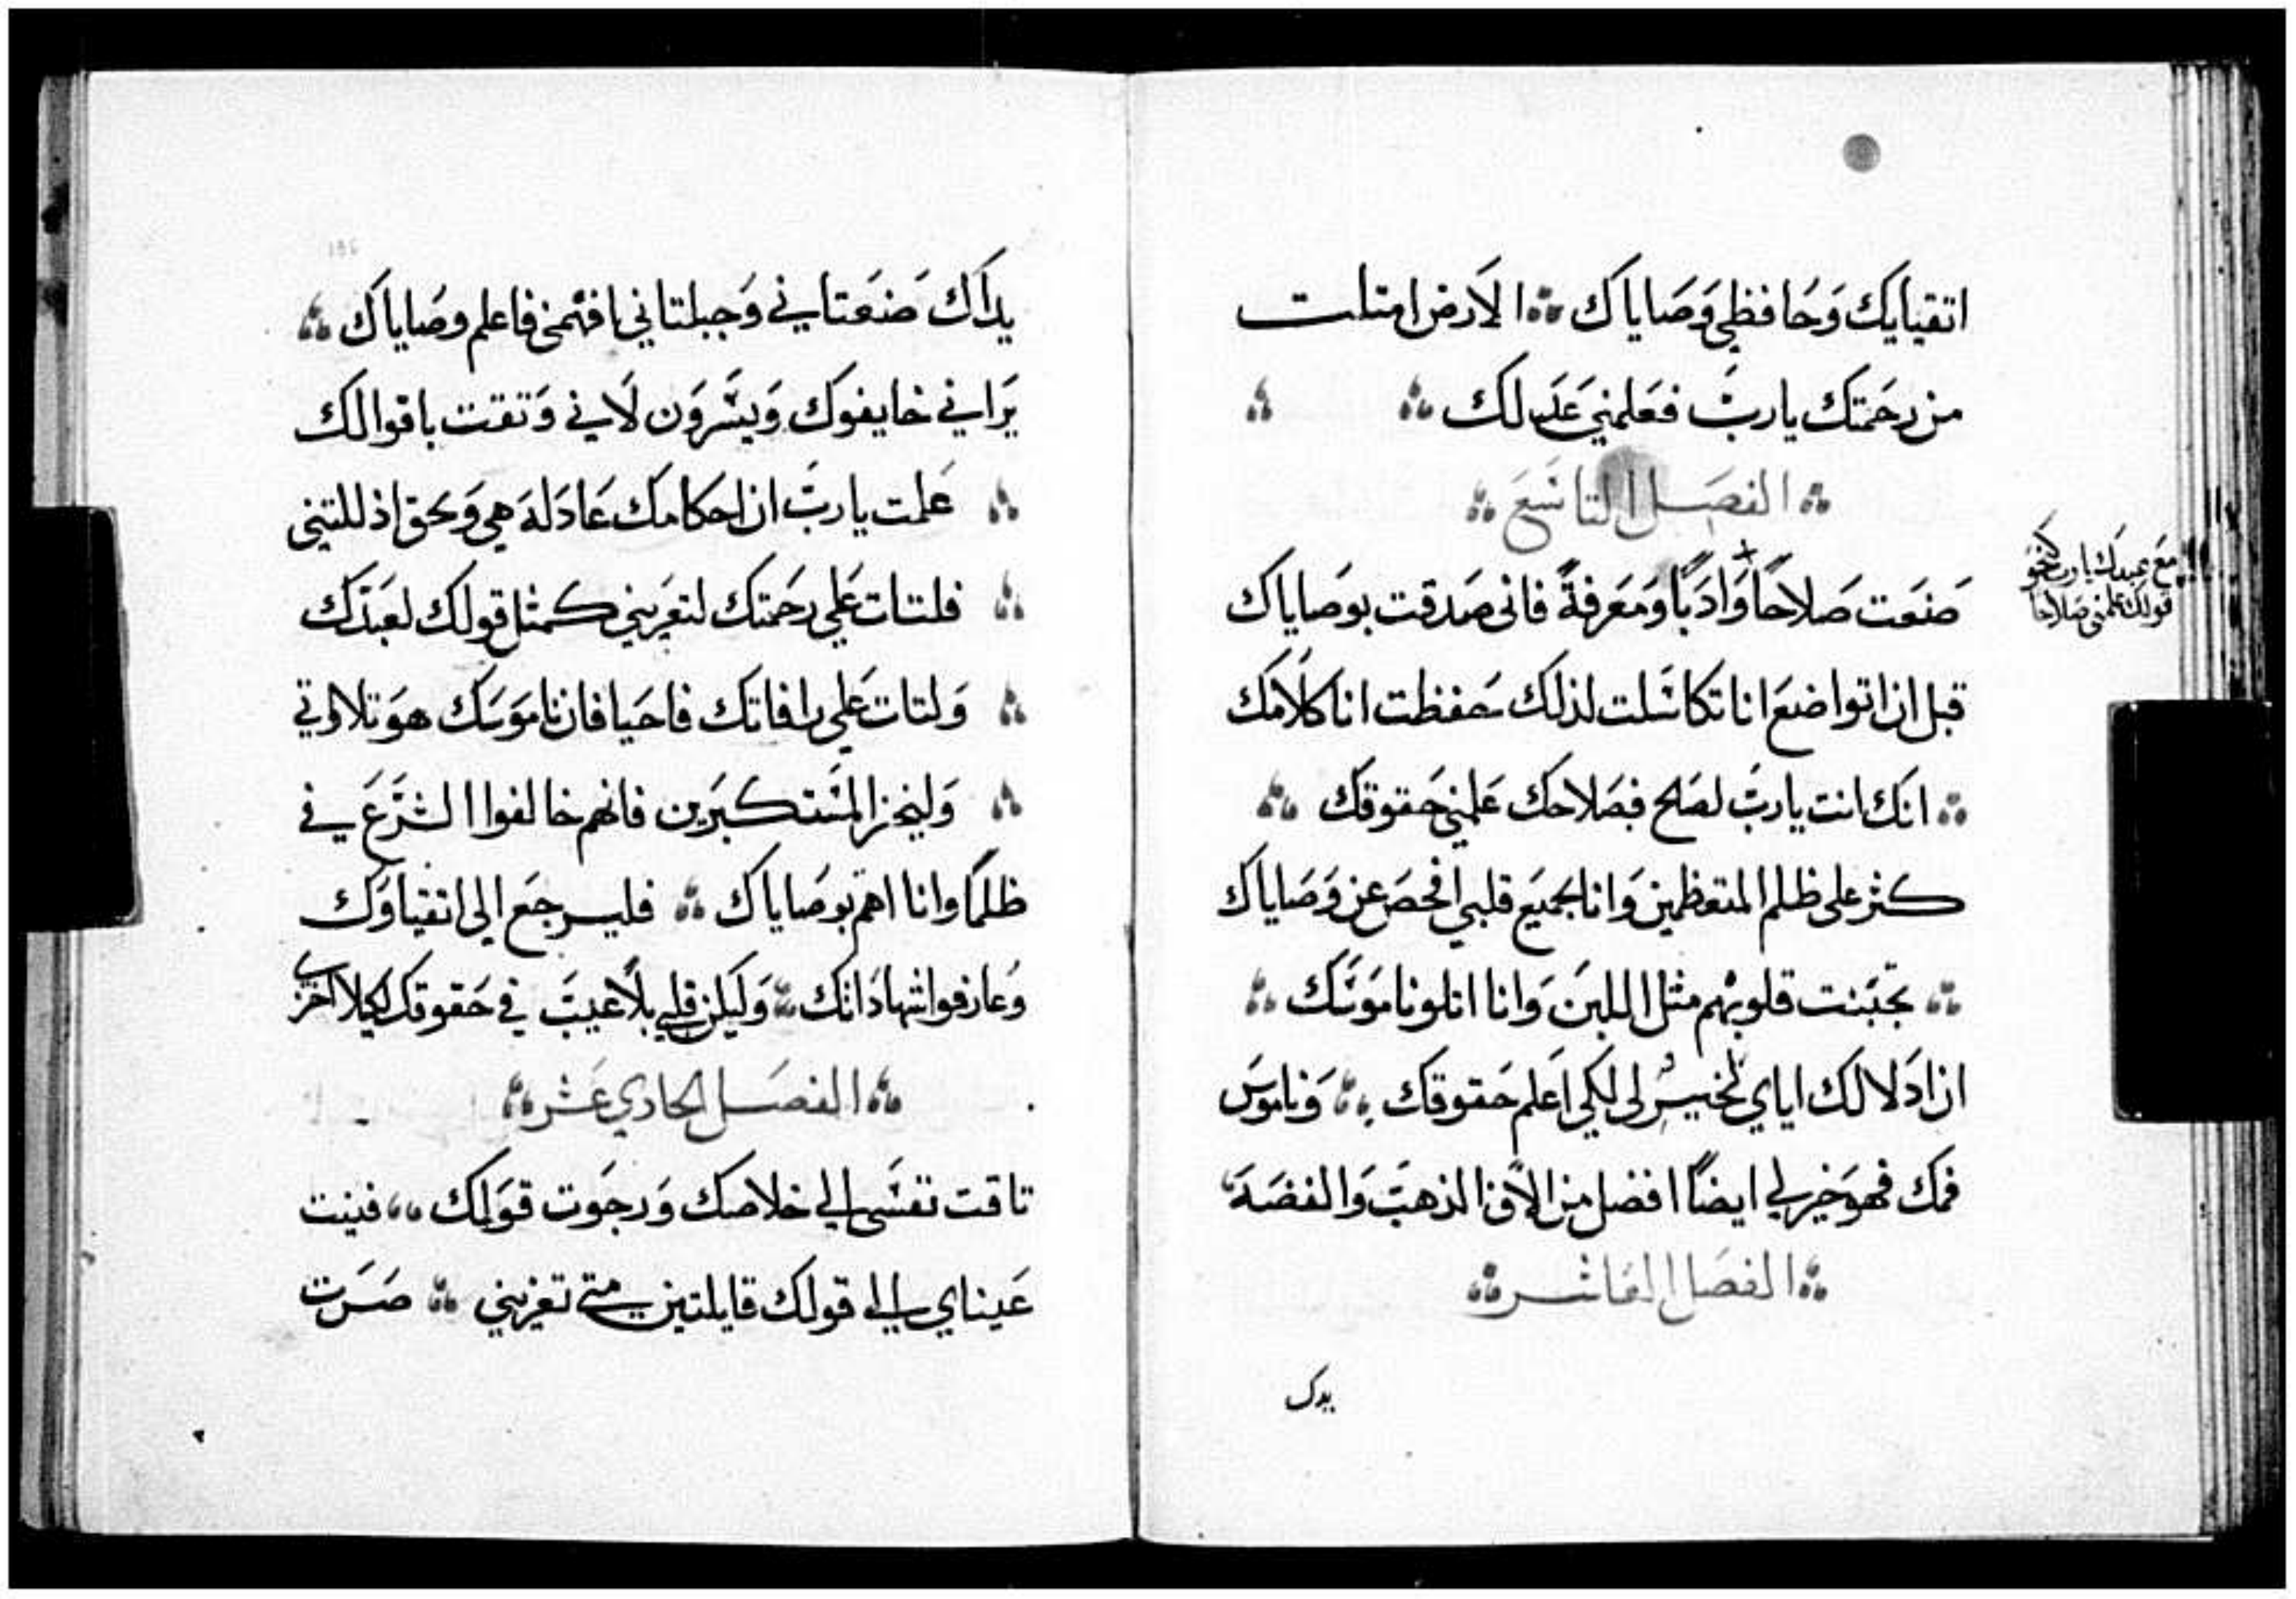 اتقيايك وَحَافظي وَصَاياك ؞ الارض امتلت
من رحَمتك يا ربّ فعَلمني عَدلك ؞ ؞
؞ الفصَل التاسَع ؞
صَنعَت صَلاحًا وَادَبًا وَمَعَرفةً فانى صَدقت بوصَاياك
مَع عبدك يا رب كنحو
قولك علمني صَلاحا
قبل ان اتواضعَ انا تكاسَلت لذلك حَفظت انا كلامَك
؞ انك انت يا ربّ لصَلح فبصَلاحك عَلمني حَقوقك ؞
كثر على ظلم المتعظمين وَانا بجميَع قلبي افحصَ عن وَصَاياك
؞ تجبَنت قلوبهم مثل اللبن وَانا اتلو نامَوسَك ؞
ان اذلالك اياي لخيرٌ لى لكي اعَلم حَقوقك ؞ وَناموسَ
فمك فهوَ خير لي ايضًا افضل من الاف الذهبَ وَالفضَة
؞ الفصَل العَاشر ؞
يدك
يداك صَنعَتاني وَجبلتاني افهمني فاعلم وصَاياك ؞
يَراني خايفوك وَيسَّروَن لاني وَتقت باقوالك
؞ عَلمت يا ربّ ان احكامك عَادَلة هي وَبحق اذللتني
؞ فلتات عَلي رحَمتك لتعَزيني كمثل قولك لعَبدَك
؞ وَلتات عَلي رافاتك فاحَيا فان نامَوسَك هوَ تلاوتي
؞ وَليخز المسَتكبرَين فانهم خالفوا الشرَع في
ظلمًا وانا اهتم بوصَاياك ؞ فليرجعَ الى اتقياوَك
وَعارفوا شهادَاتك ؞ وَليكن قلبي بلاعَيبَ في حَقوقك لكيلا اخزى
؞ الفصَل الحادي عَشر ؞
تاقت نفسَي الى خلاصَك وَرجَوت قوَلك ؞ فنيت
عَيناي الى قولك قايلتين متى تعَزيني ؞ صَرت